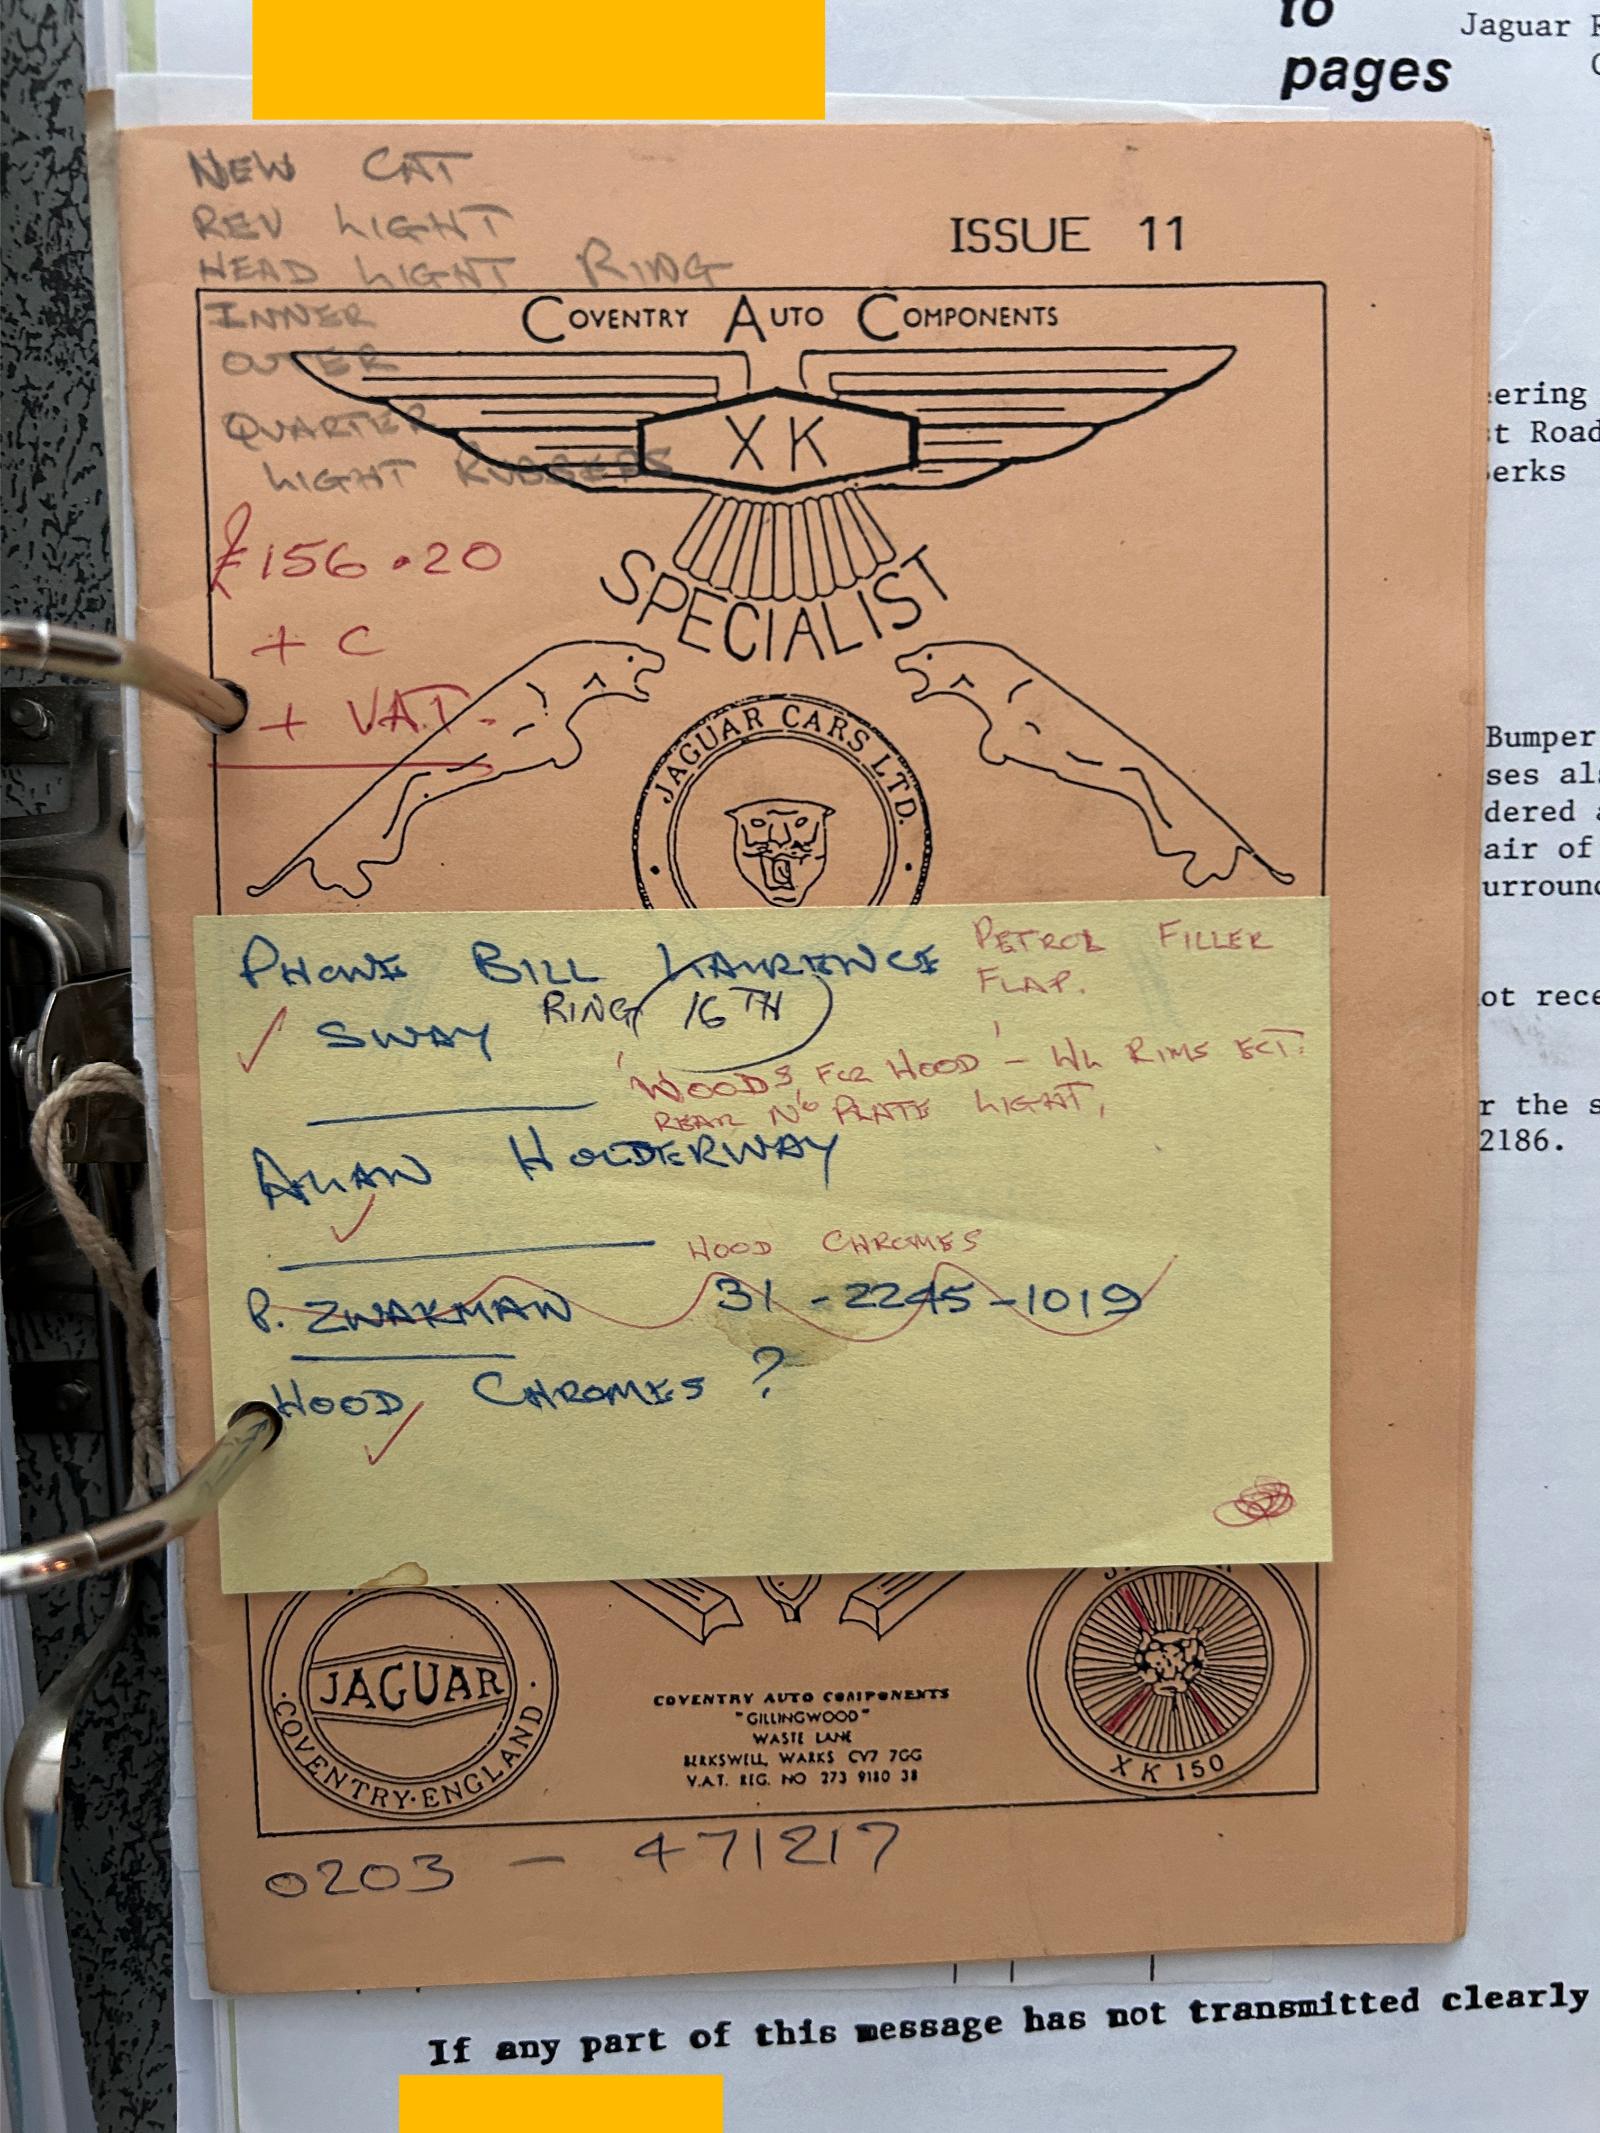 to
pages
Jaguar
NEW CAT
REV LIGHT
HEAD LIGHT RING
INNER
OUTER
QUARTER
LIGHT RUBBERS
ISSUE 11
COVENTRY AUTO COMPONENTS
XK
SPECIALIST
£156.20
+ C
+ VAT.
JAGUAR CARS LTD.
ering
t Road
erks
Bumper
ses als
dered a
air of
urroun
ot rece
r the s
2186.
PHONE BILL LAURENCE
PETROL FILLER
FLAP.
RING 16TH
SWAY
'WOODS FOR HOOD' - WL RIMS ECT.
REAR No PLATE LIGHT,
ALLAN HOLDERWAY
HOOD CHROMES
P. ZWAKMAN 31-2245-1019
HOOD CHROMES ?
JAGUAR
·COVENTRY·ENGLAND·
COVENTRY AUTO COMPONENTS
"GILLINGWOOD"
WASTE LANE
BERKSWELL, WARKS CV7 7GG
V.A.T. REG. NO 273 9180 38
XK 150
0203 - 471217
If any part of this message has not transmitted clearly